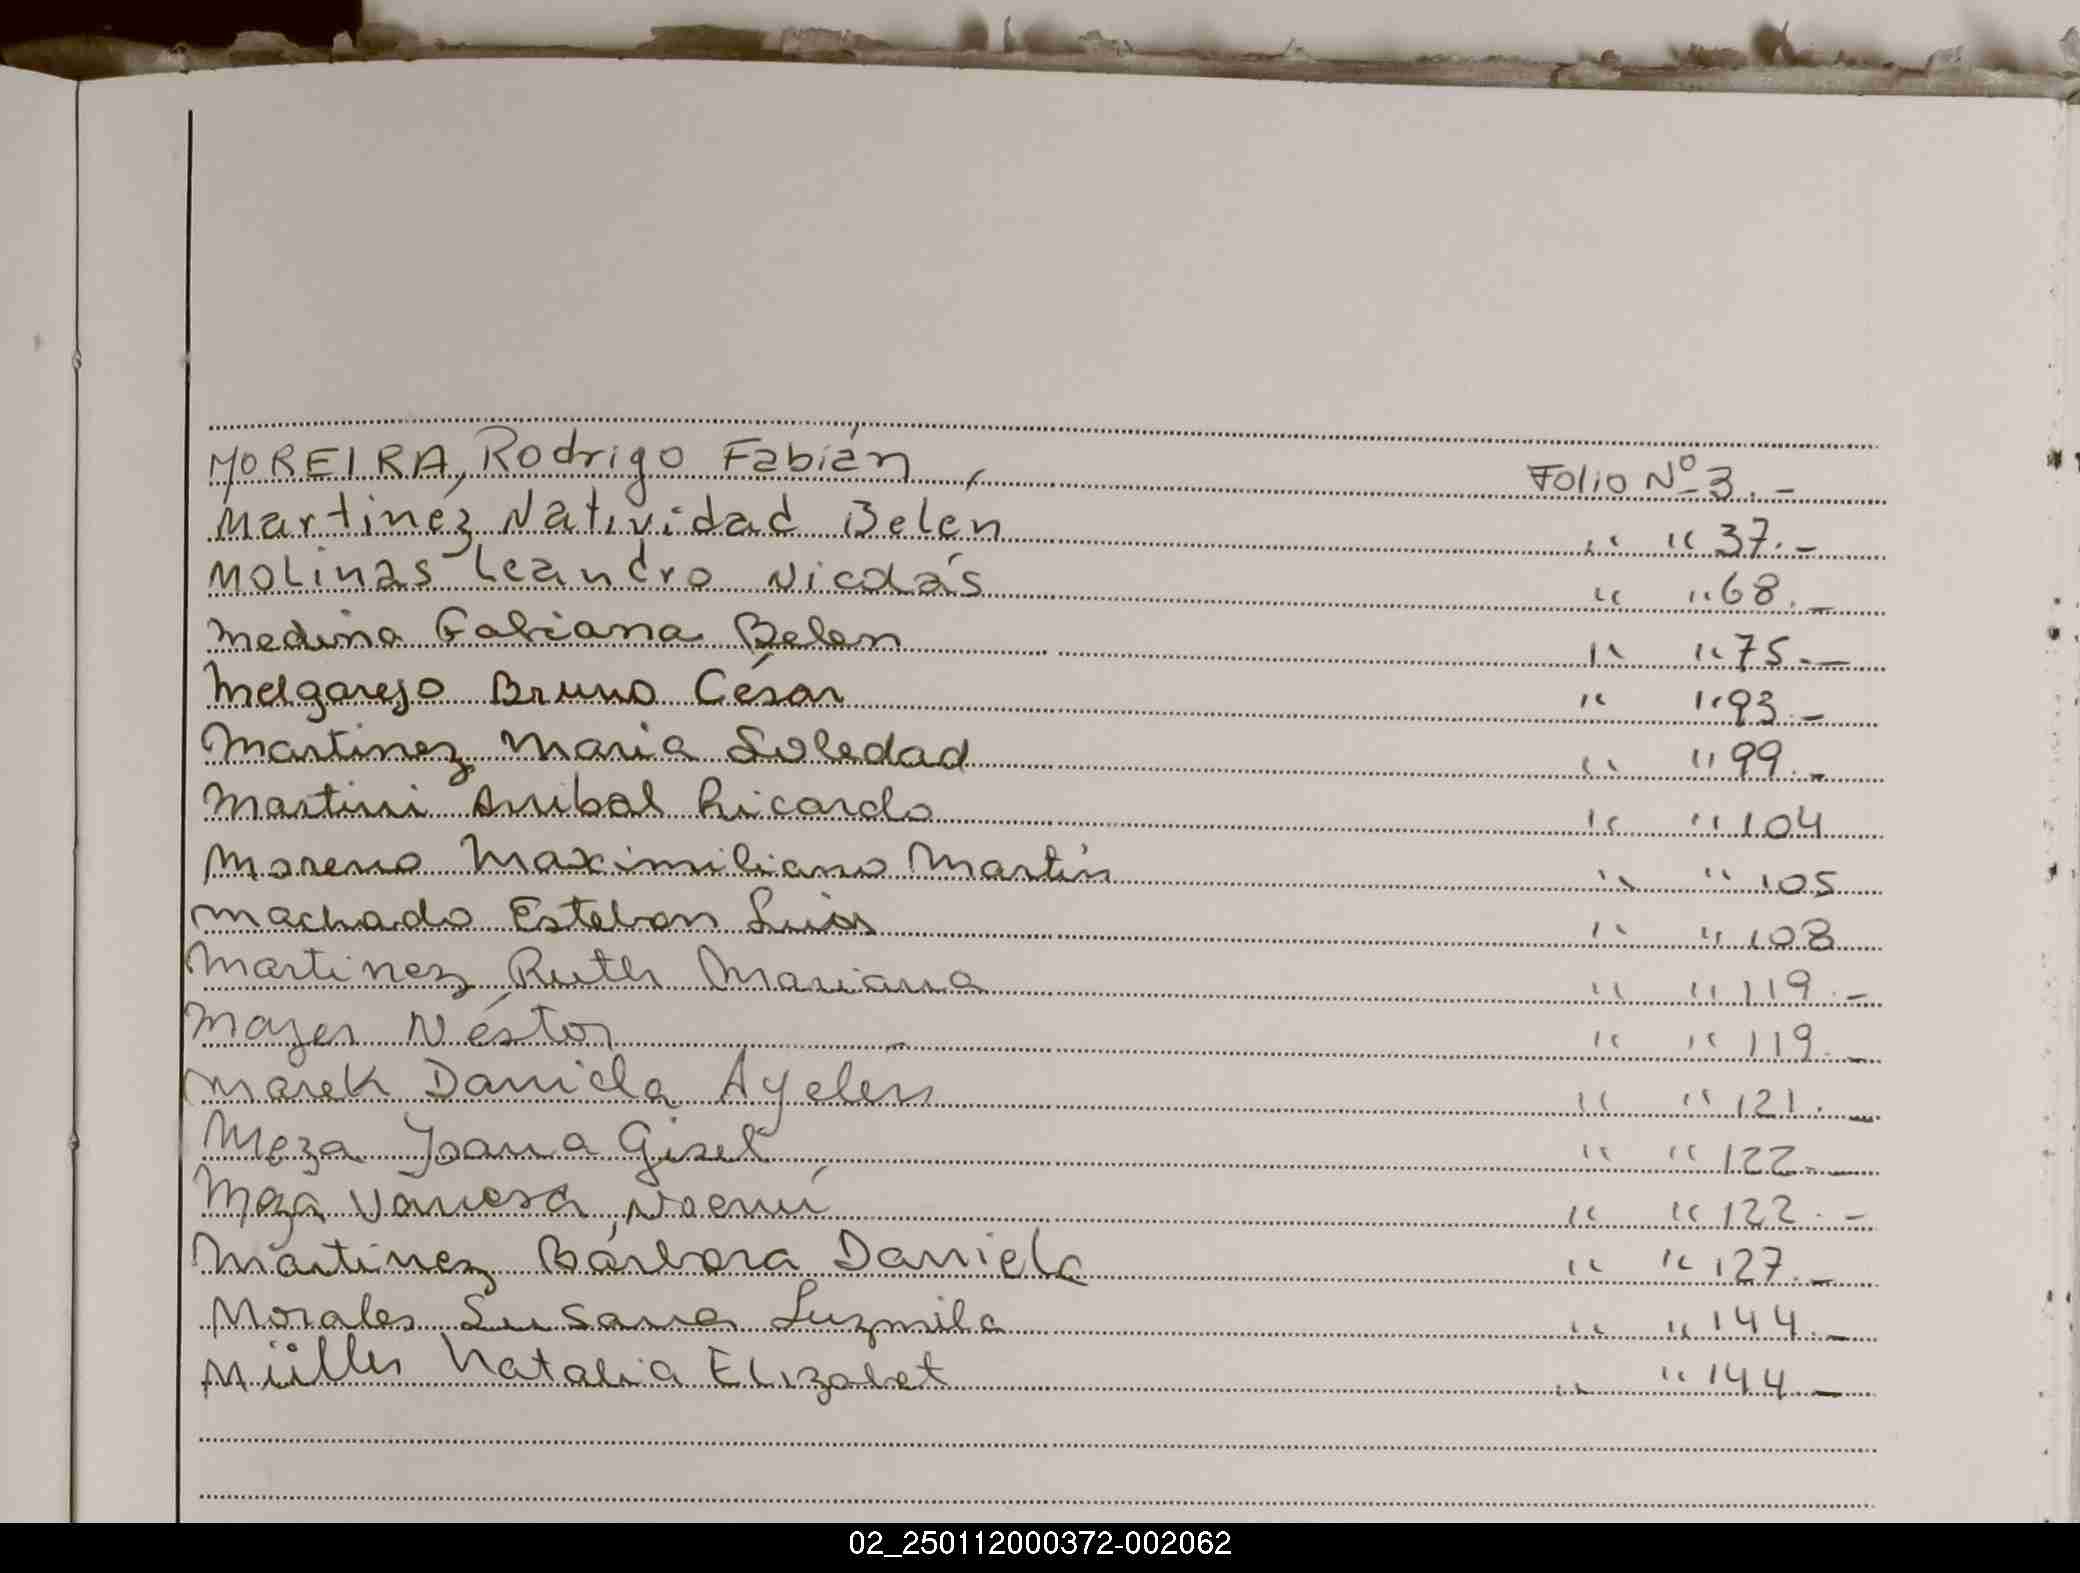 MOREIRA, Rodrigo Fabián Folio Nº 3.-
Martínez, Natividad Belén " " 37.-
Molinas Leandro Nicolás " " 68.-
Medina Fabiana Belen " " 75.-
Melgarejo Bruno César " " 93.-
Martinez Maria Soledad " " 99.-
Martini Anibal Ricardo " " 104
Moreno Maximiliano Martín " " 105
Machado Esteban Luis " " 108
Martinez Ruth Mariana " " 119.-
Mayer Néstor " " 119.-
Marek Daniela Ayelen " " 121.-
Meza Joana Gisel " " 122.-
Meza Vanesa, Noemí " " 122.-
Martinez Bárbara Daniela " " 127.-
Morales Susana Luzmila " " 144.-
Müller Natalia Elizabet " " 144.-
02_250112000372-002062